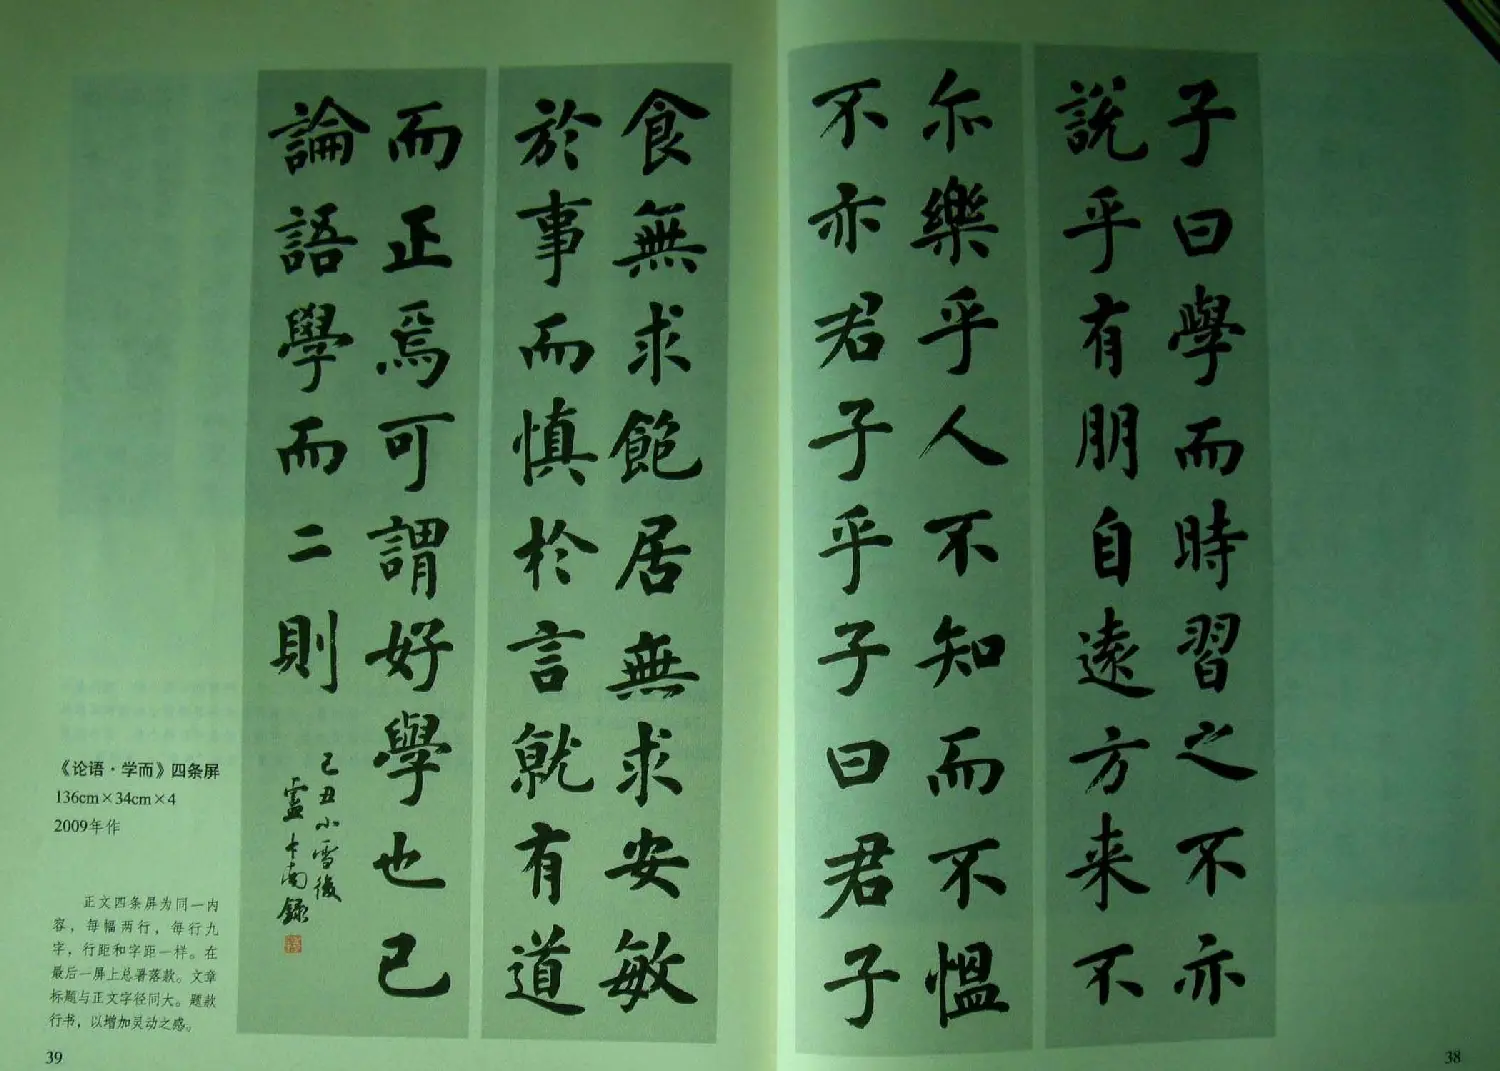 子曰學而時習之不亦
說乎有朋自遠方来不
亦樂乎人不知而不慍
不亦君子乎子曰君子
食無求飽居無求安敏
於事而慎於言就有道
而正焉可謂好學也已
論語學而二則
己丑小雪後
盧中南錄
《论语·学而》四条屏
136cm×34cm×4
2009年作
正文四条屏为同一内
容，每幅两行，每行九
字，行距和字距一样。在
最后一屏上总署落款。文章
标题与正文字径同大。题款
行书，以增加灵动之感。
39
38